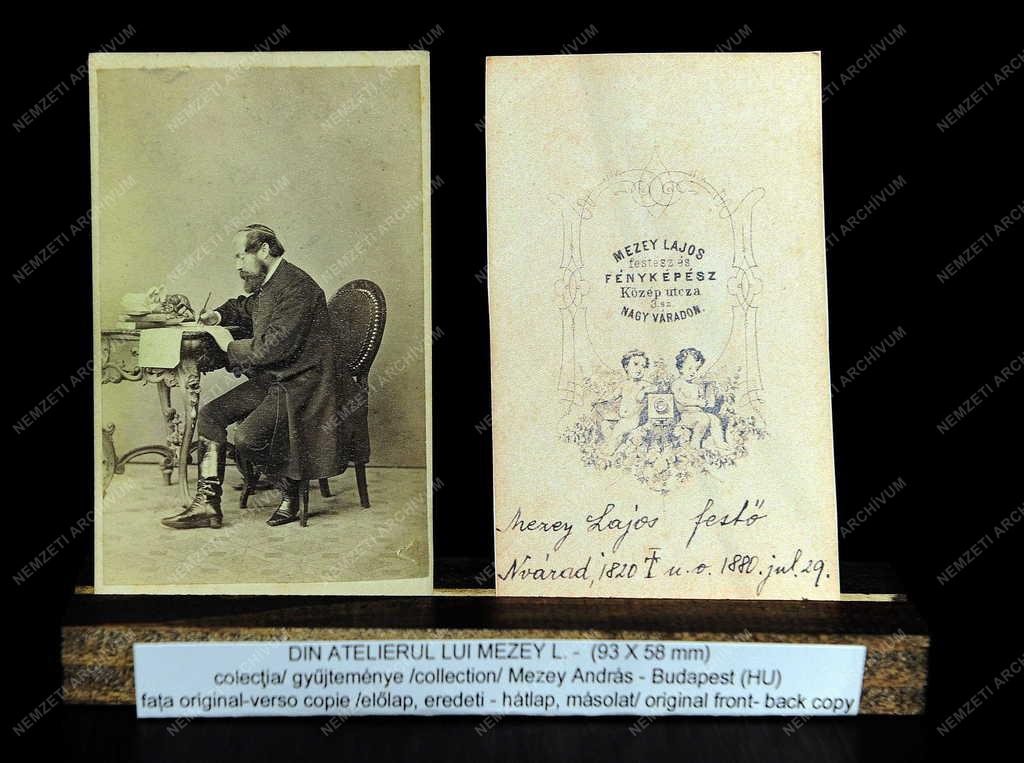 MEZEY LAJOS
festesz és
FÉNYKÉPÉSZ
Közép utcza
3.sz.
NAGY VÁRADON.
Mezey Lajos festő
Nvárad, 1820 † u.o. 1880. jul. 29.
DIN ATELIERUL LUI MEZEY L. - (93 X 58 mm)
colecţia/ gyűjteménye /collection/ Mezey András - Budapest (HU)
faţa original-verso copie /előlap, eredeti - hátlap, másolat/ original front- back copy
NEMZETI ARCHÍVUM